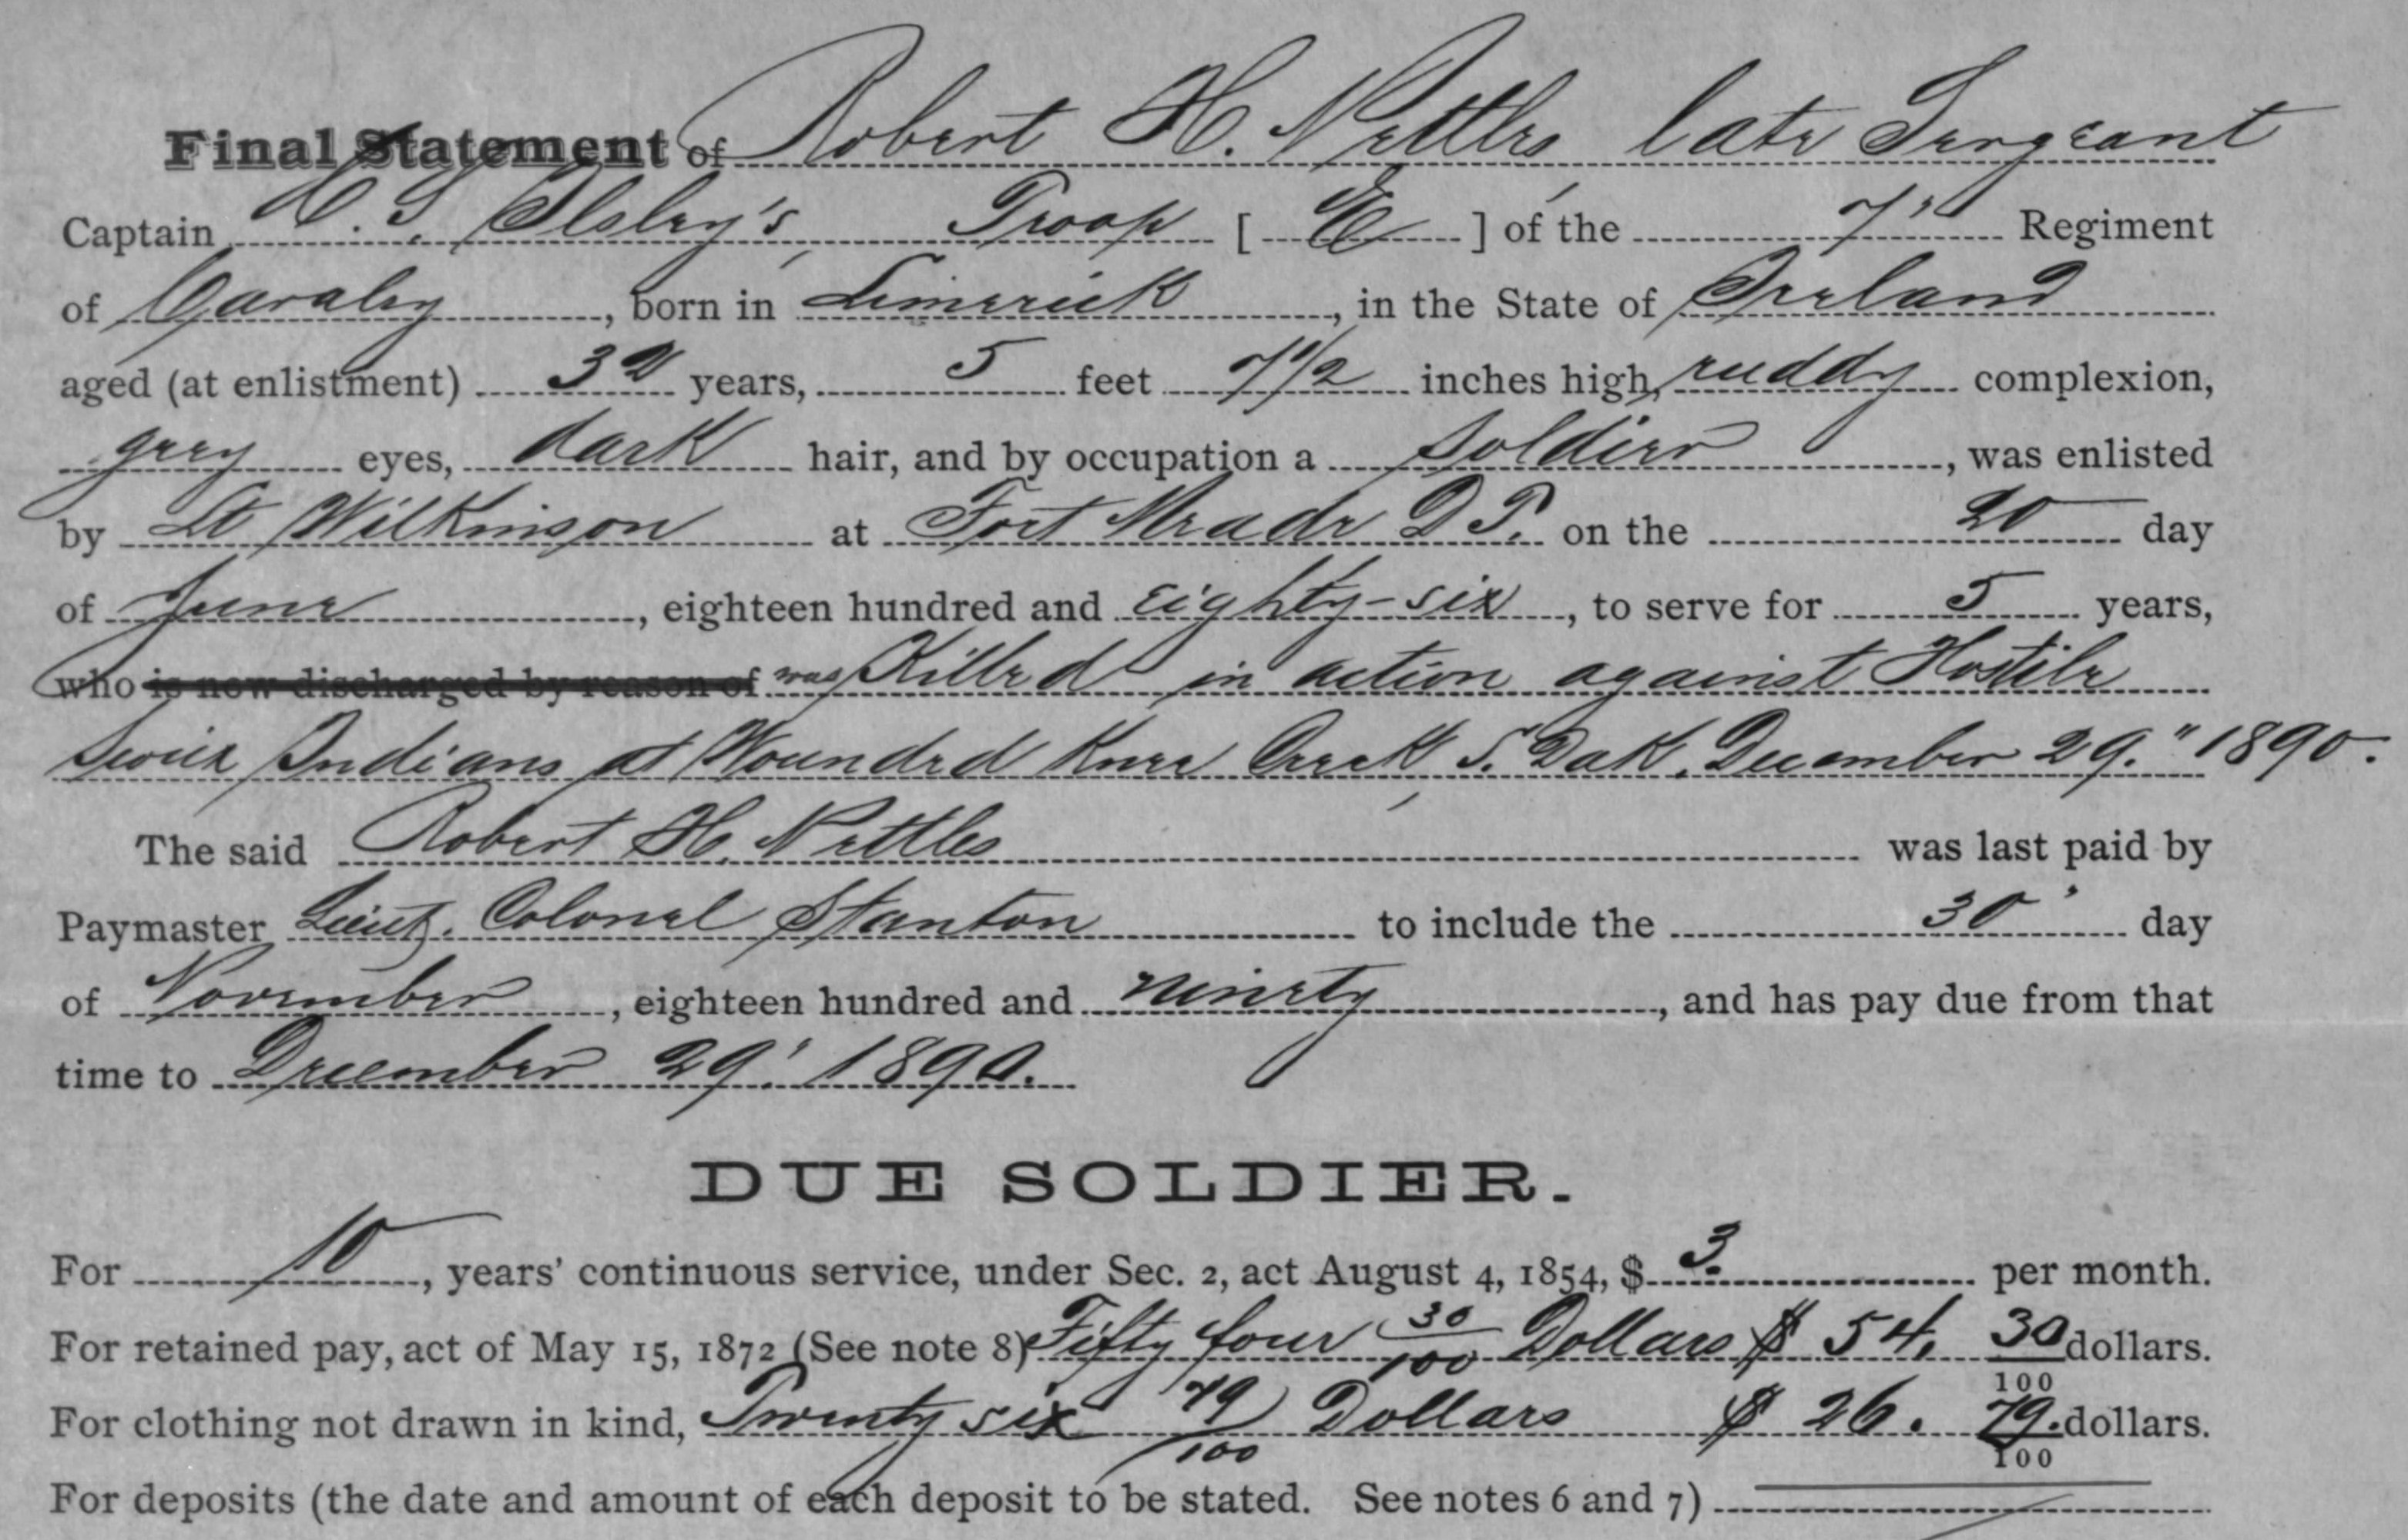 Final Statement of Robert H. Nettles late Sergeant
Captain C. S. Ilsley's, Troop [ E ] of the 7" Regiment
of Cavalry, born in Limerick, in the State of Ireland
aged (at enlistment) 32 years, 5 feet 7 1/2 inches high, ruddy complexion,
grey eyes, dark hair, and by occupation a Soldier, was enlisted
by Lt Wilkinson at Fort Meade D.T. on the 20 day
of June, eighteen hundred and eighty-six, to serve for 5 years,
who is now discharged by reason of was Killed in action against Hostile
Sioux Indians at Wounded Knee Creek, S. Dak. December 29." 1890.
The said Robert H. Nettles was last paid by
Paymaster Lieut. Colonel Stanton to include the 30" day
of November, eighteen hundred and ninety, and has pay due from that
time to December 29" 1890.
DUE SOLDIER.
For 10, years' continuous service, under Sec. 2, act August 4, 1854, $ 3. per month.
For retained pay, act of May 15, 1872 (See note 8) Fifty four 30/100 Dollars $ 54. 30/100 dollars.
For clothing not drawn in kind, Twenty six 79/100 Dollars $ 26. 79/100 dollars.
For deposits (the date and amount of each deposit to be stated. See notes 6 and 7)